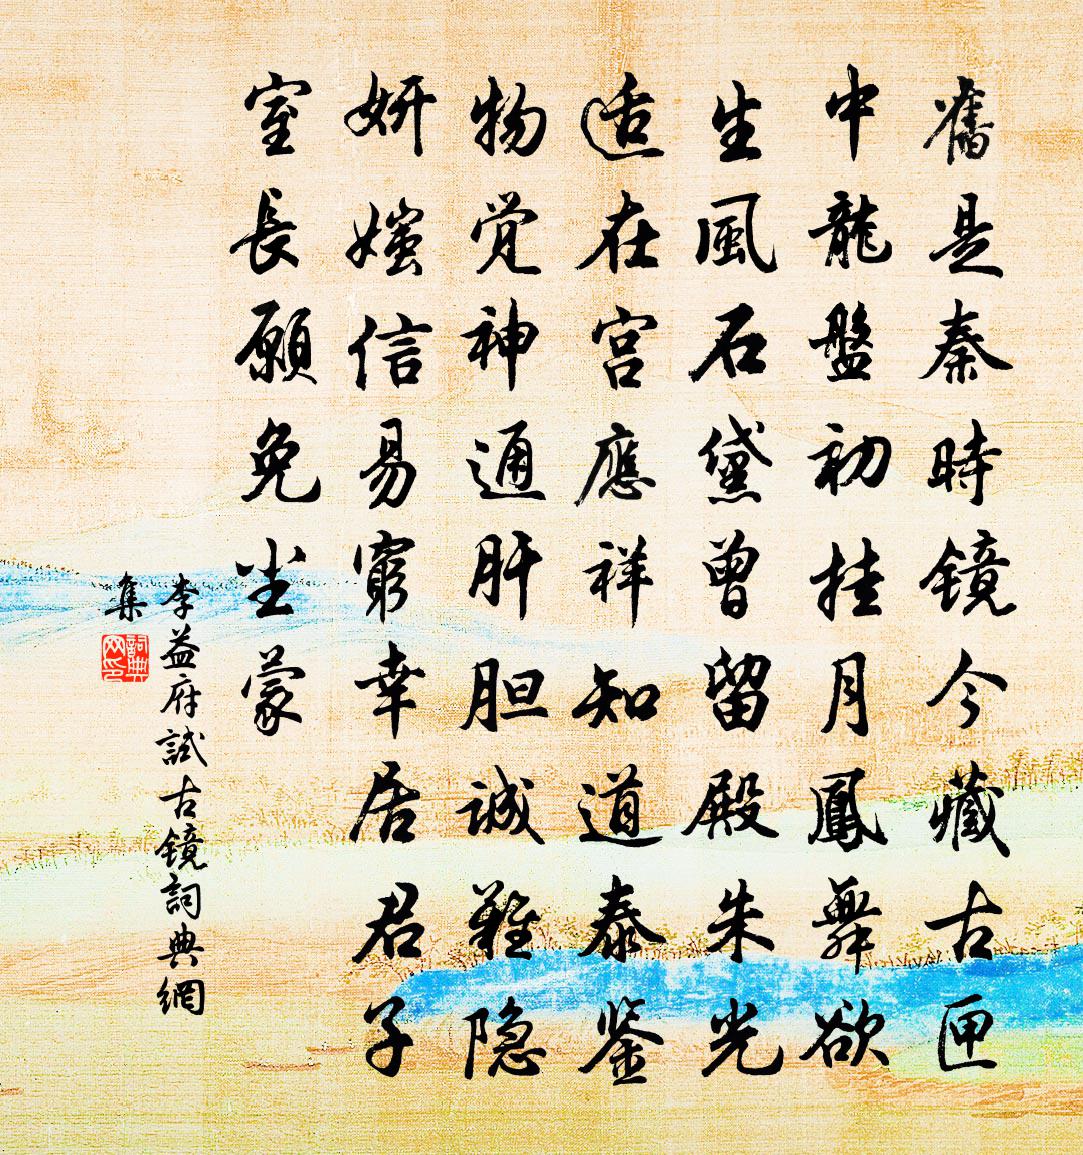 舊是秦時镜今藏古匣
中龍盤初挂月鳳舞欲
生風石黛曾留殿朱光
适在宫應祥知道泰鉴
物觉神通肝胆誠難隐
妍媸信易窮幸居君子
室長願免尘蒙
李益府試古镜詞典網
集
詞典网印